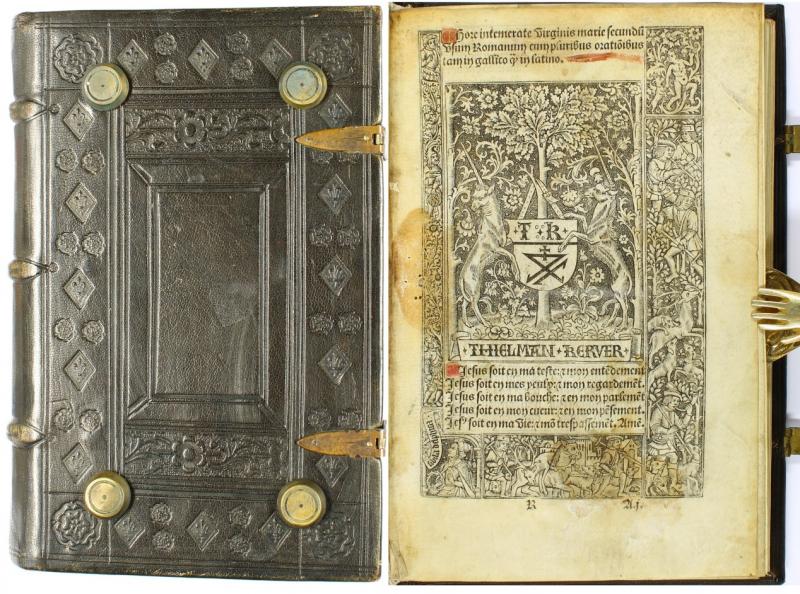 Hore intemerate Virginis marie secundũ
vsum Romanum cum pluribus oratiõibus
tam in gallico q̃ in latino.
T R
THIELMAN KERVER
Jesus soit en ma teste: ⁊ mon entẽdement
Jesus soit en mes yeulx: ⁊ mon regardemẽt.
Jesus soit en ma bouche: ⁊ en mon parlement
Jesus soit en mon cueur: ⁊ en mon pẽsement.
Jesꝰ soit en ma vie: ⁊ mõ trespassemẽt. Amẽ.
R A.j.